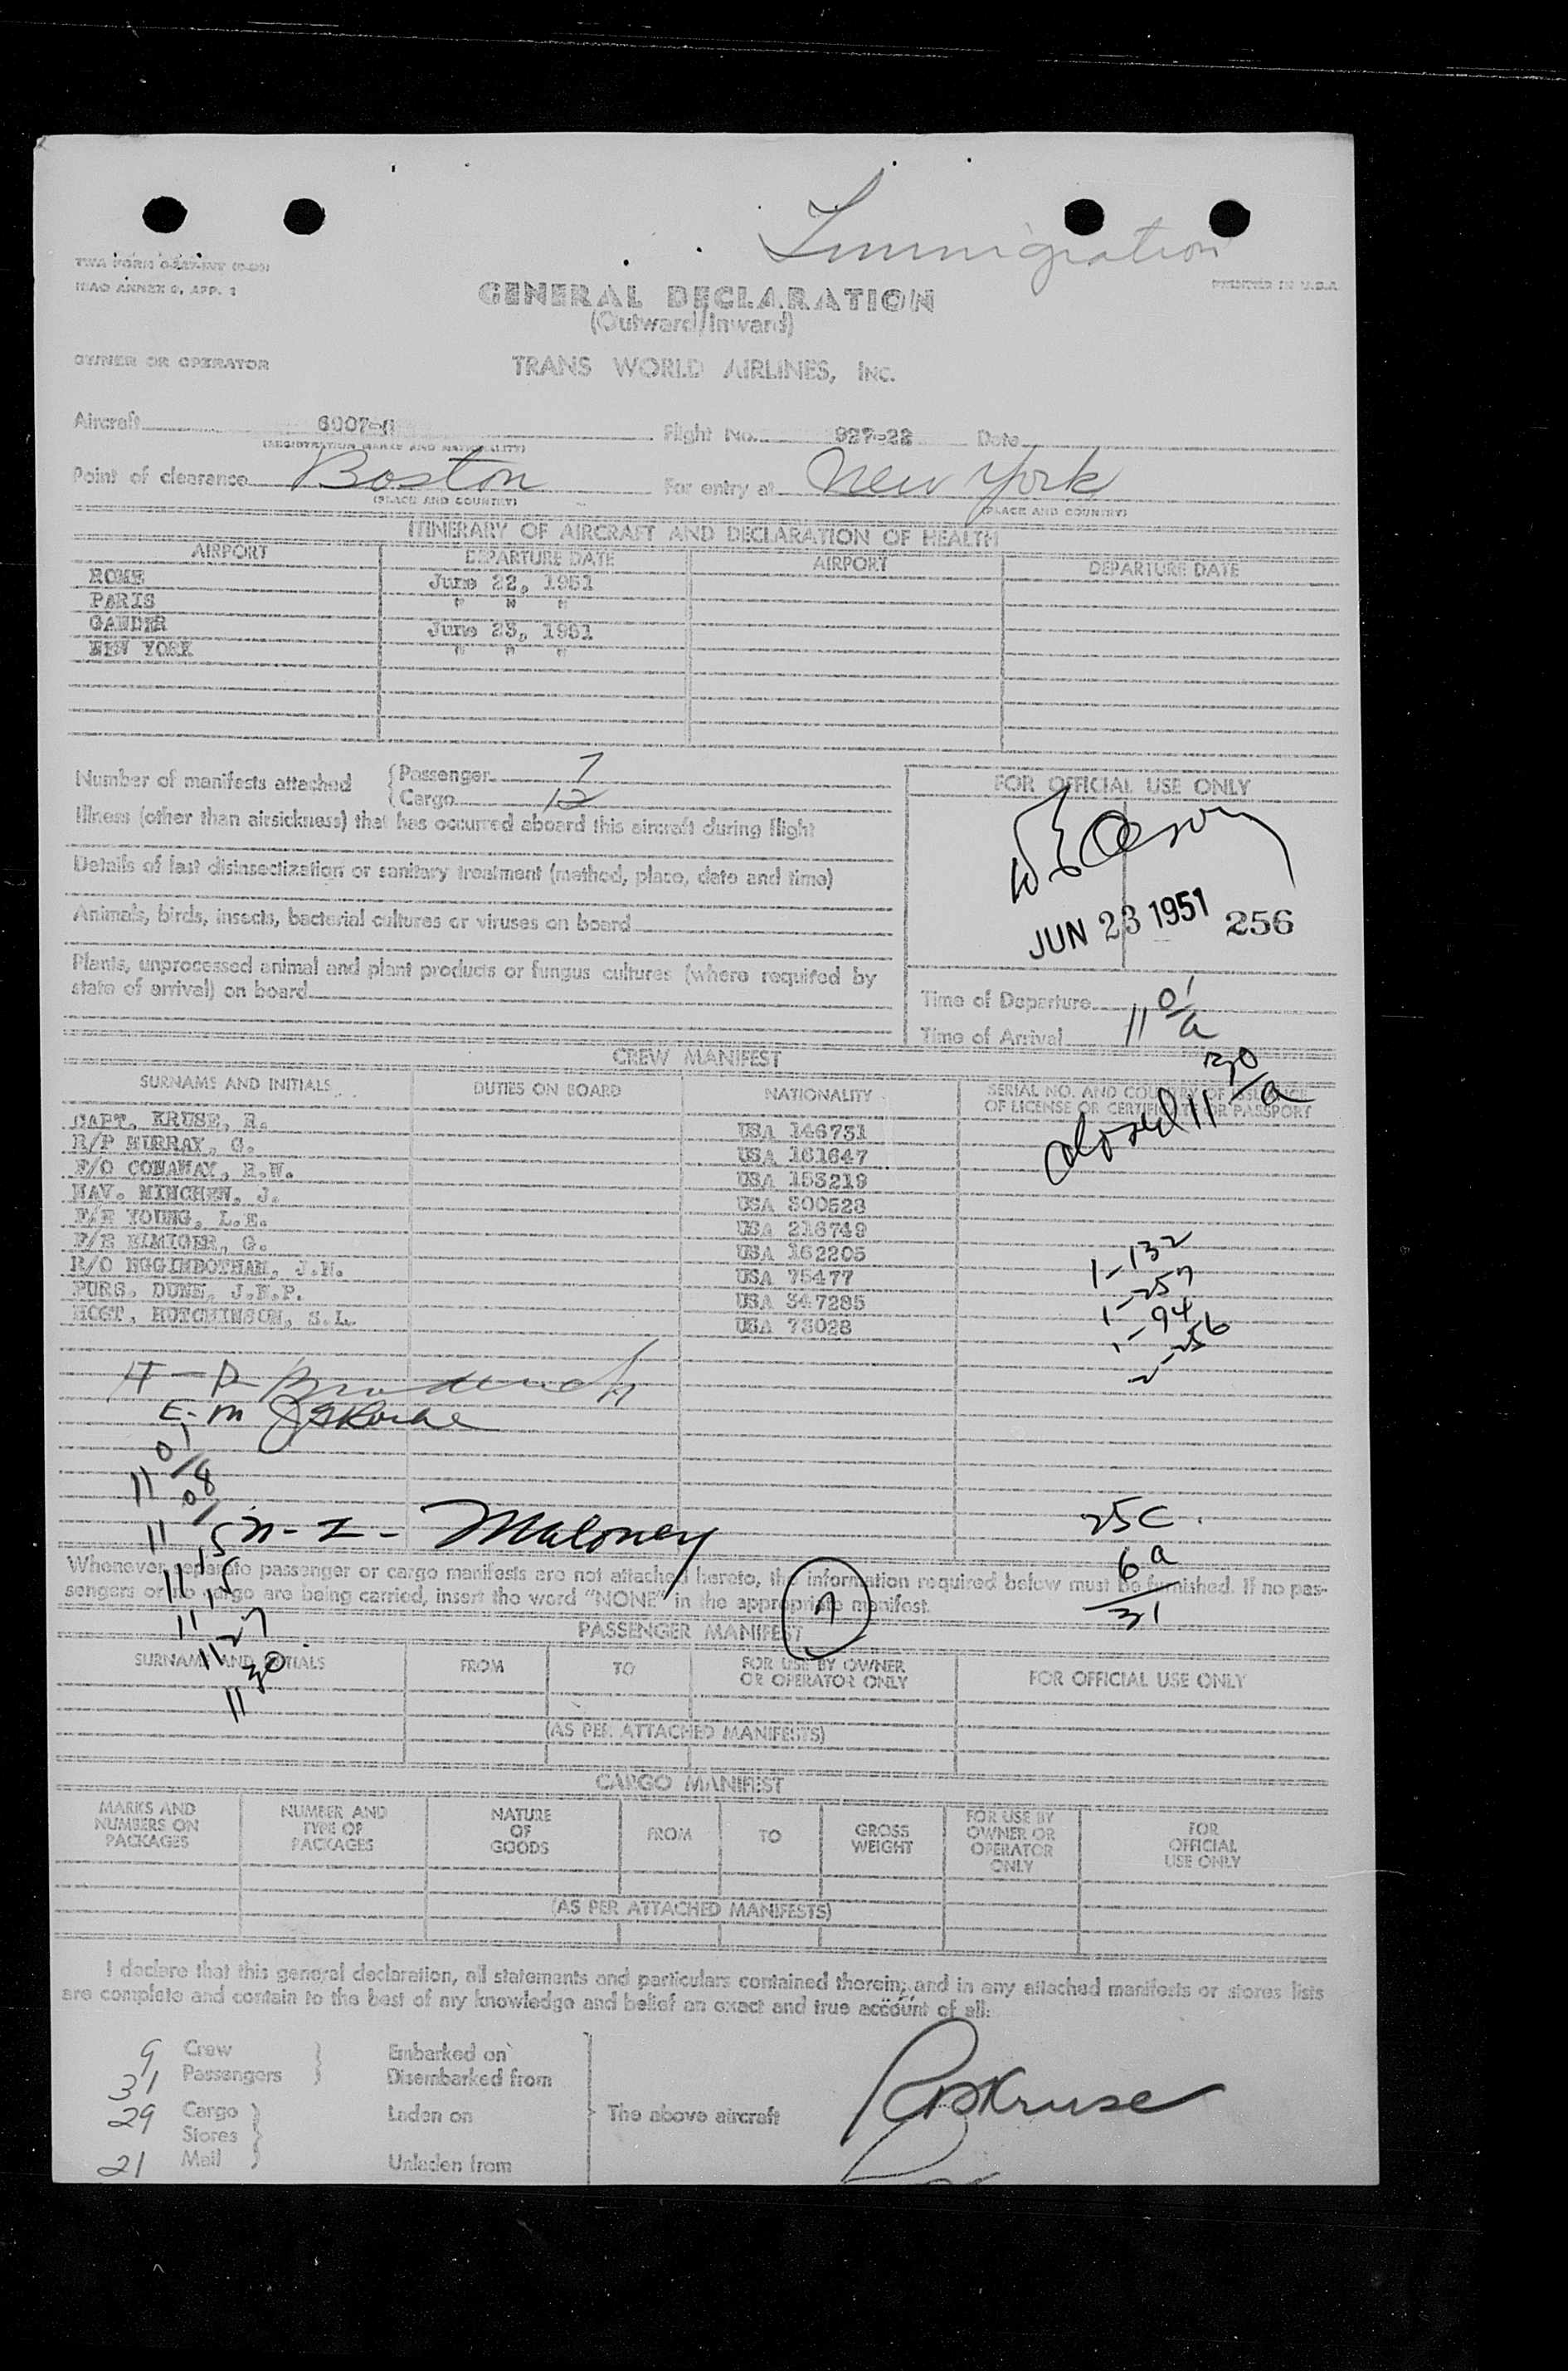 Immigration
TWA FORM
ICAO ANNEX 9, APP. 1
PRINTED IN U.S.A.
GENERAL DECLARATION
(Outward/Inward)
OWNER OR OPERATOR TRANS WORLD AIRLINES, INC.
Aircraft Flight No. 927-22 Date
(REGISTRATION MARKS AND NATIONALITY)
Point of clearance Boston For entry at New York
(PLACE AND COUNTRY) (PLACE AND COUNTRY)
ITINERARY OF AIRCRAFT AND DECLARATION OF HEALTH
AIRPORT DEPARTURE DATE AIRPORT DEPARTURE DATE
ROME June 22, 1951
PARIS " " "
GANDER June 23, 1951
NEW YORK " " "
Number of manifests attached { Passenger 7
Cargo 12
Illness (other than airsickness) that has occurred aboard this aircraft during flight
Details of last disinsectization or sanitary treatment (method, place, date and time)
Animals, birds, insects, bacterial cultures or viruses on board
Plants, unprocessed animal and plant products or fungus cultures (where required by
state of arrival) on board
FOR OFFICIAL USE ONLY
JUN 23 1951 256
Time of Departure
Time of Arrival 11 01/a
closed 11 30/a
CREW MANIFEST
SURNAME AND INITIALS DUTIES ON BOARD NATIONALITY SERIAL NO. AND COUNTRY OF ISSUANCE
OF LICENSE OR CERTIFICATE OR PASSPORT
CAPT. KRUSE, R. USA 146731
R/P MURRAY, G. USA 161647
F/O CONAWAY, R.W. USA 153219
NAV. MINCHEW, J. USA 300528
F/E YOUNG, L.E. USA 216749
F/E ELMIGER, G. USA 162205
R/O HGGINBOTHAM, J.H. USA 75477
PURS. DUNN, J.F.P. USA 347285
HOST, HUTCHINSON, S.L. USA 73028
1-132
1-257
1-94
2-256
11 01
11 08
11 15
11 27
11 30
N-I- Maloney
25C
6a
31
Whenever separate passenger or cargo manifests are not attached hereto, the information required below must be furnished. If no pas-
sengers or no cargo are being carried, insert the word "NONE" in the appropriate manifest.
7
PASSENGER MANIFEST
SURNAME AND INITIALS FROM TO FOR USE BY OWNER
OR OPERATOR ONLY FOR OFFICIAL USE ONLY
(AS PER ATTACHED MANIFESTS)
CARGO MANIFEST
MARKS AND
NUMBERS ON
PACKAGES
NUMBER AND
TYPE OF
PACKAGES
NATURE
OF
GOODS
FROM
TO
GROSS
WEIGHT
FOR USE BY
OWNER OR
OPERATOR
ONLY
FOR
OFFICIAL
USE ONLY
(AS PER ATTACHED MANIFESTS)
I declare that this general declaration, all statements and particulars contained therein, and in any attached manifests or stores lists
are complete and contain to the best of my knowledge and belief an exact and true account of all:
9 Crew } Embarked on
31 Passengers Disembarked from
29 Cargo } Laden on The above aircraft
Stores
21 Mail Unladen from
RDKruse